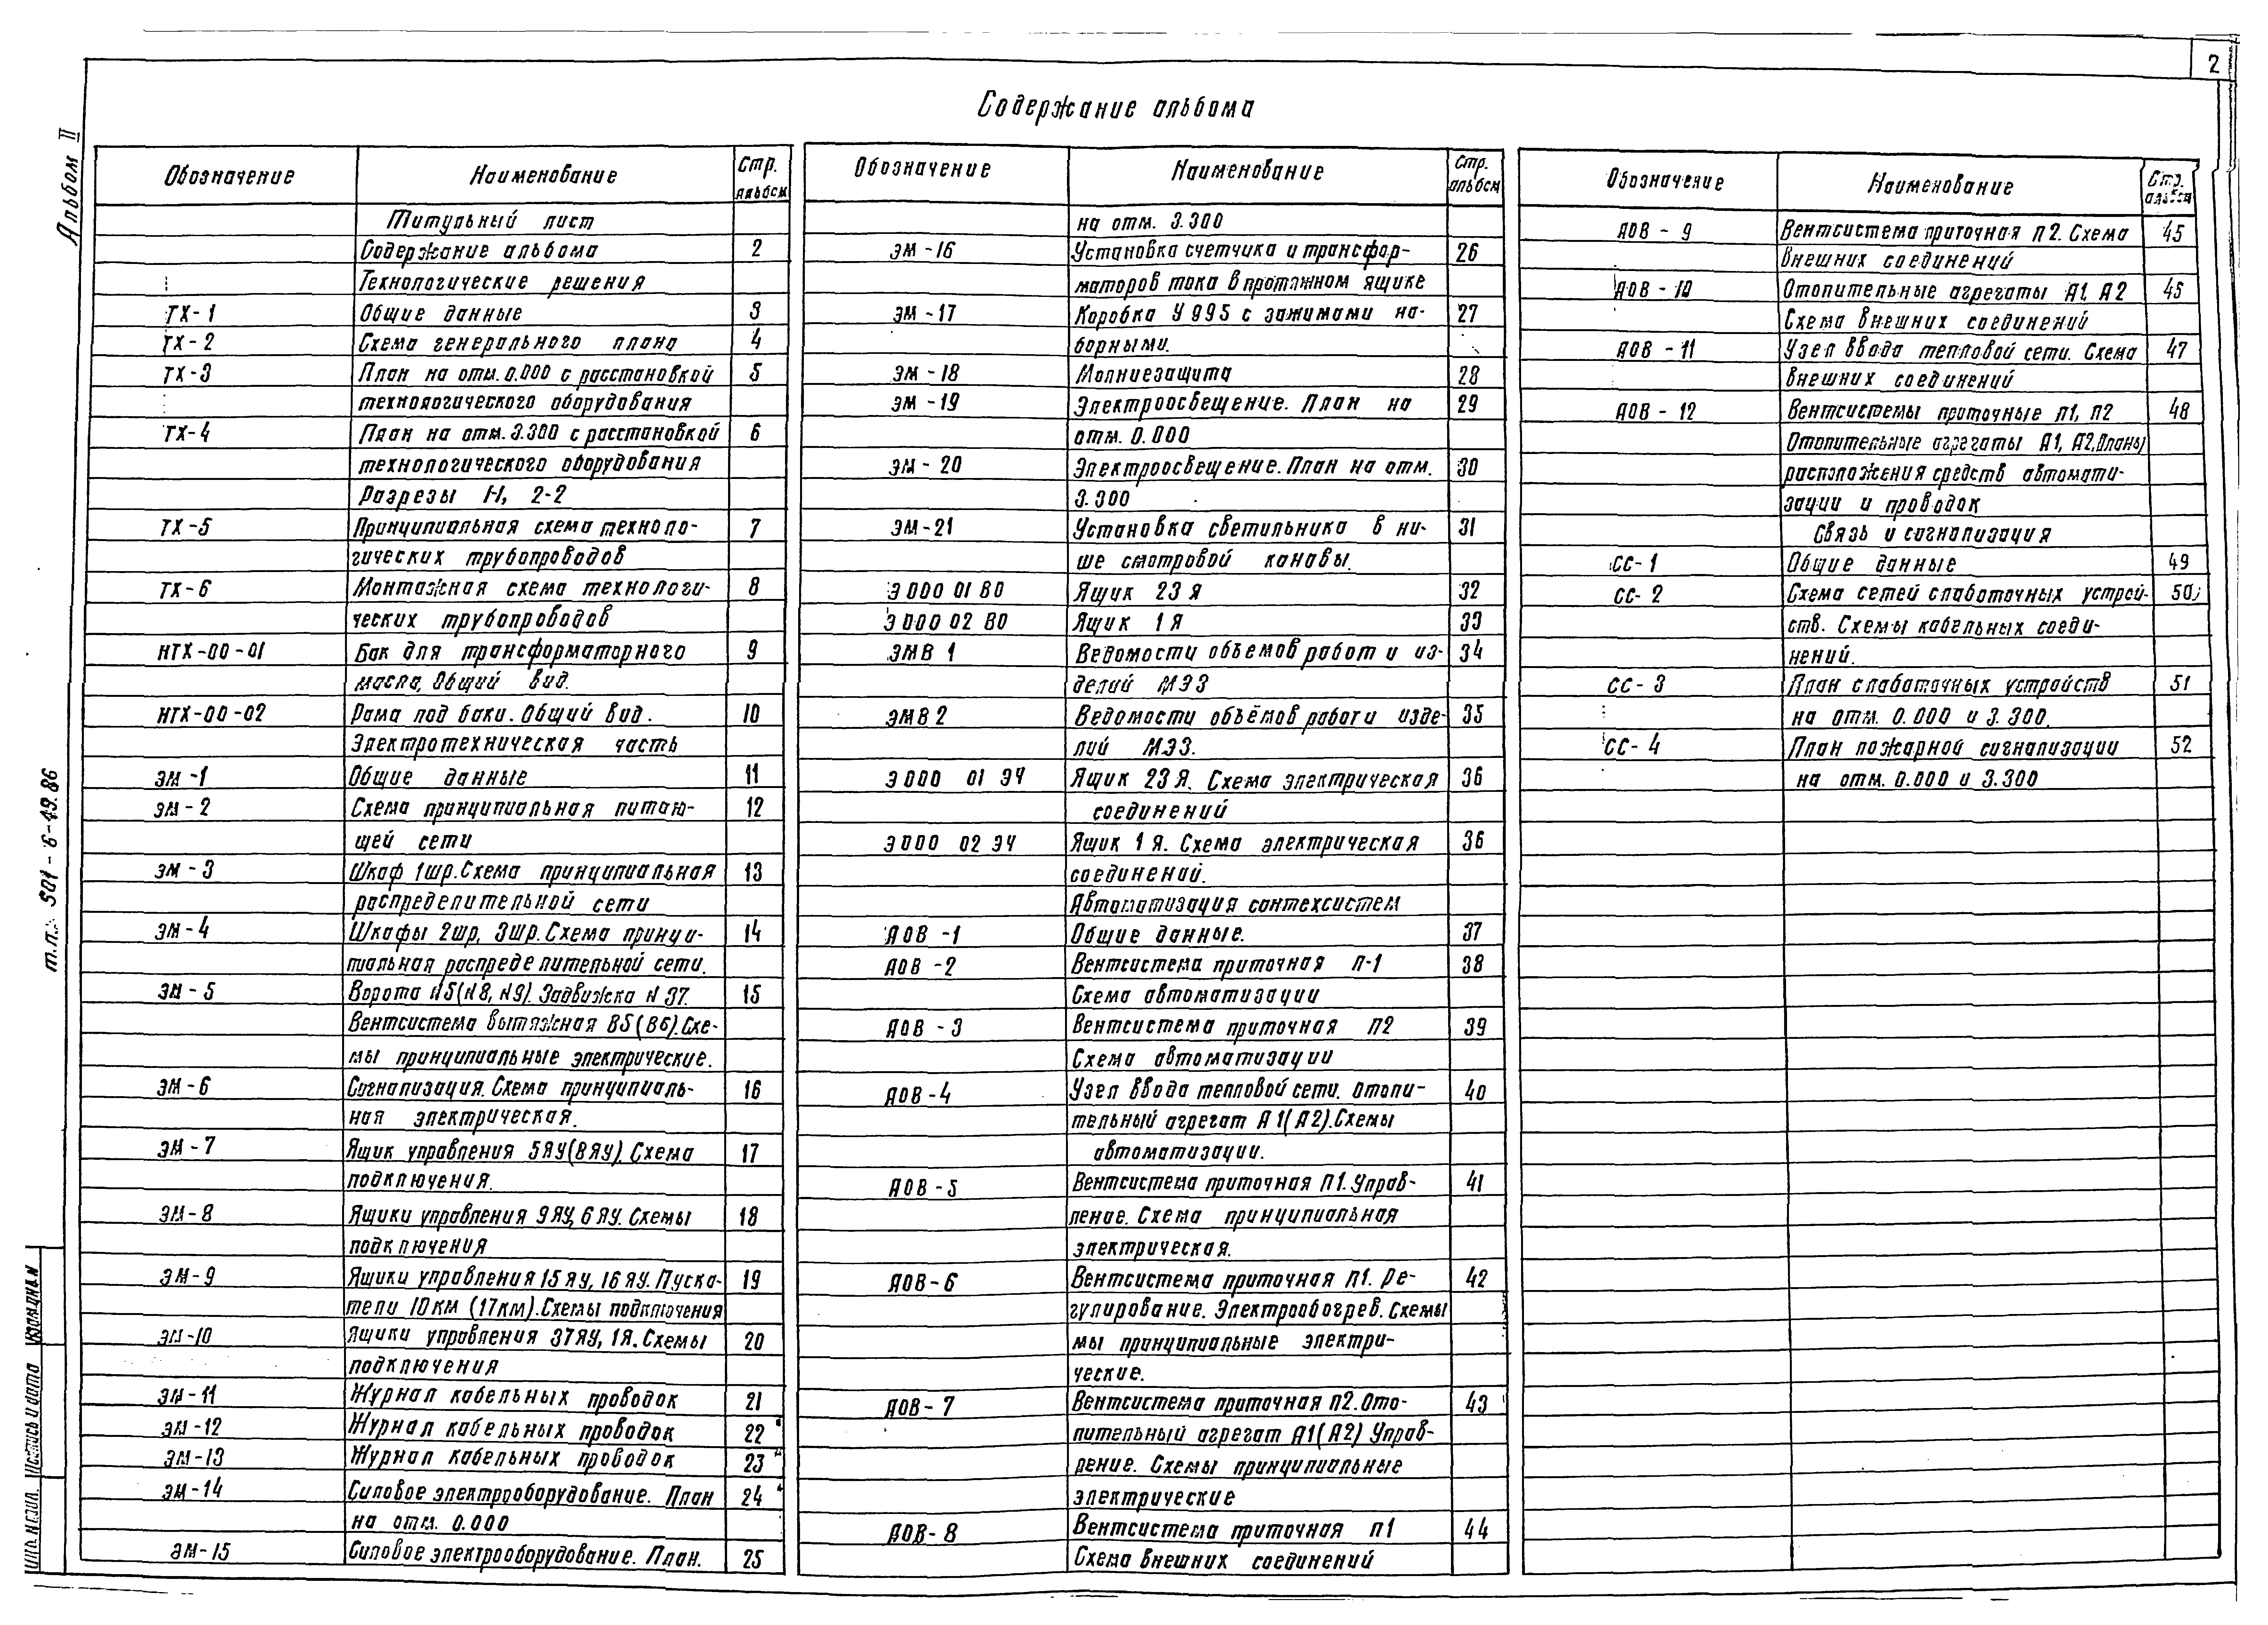 2
Альбом II
Содержание альбома
Обозначение Наименование Стр. альбом
Титульный лист
Содержание альбома 2
Технологические решения
ТХ-1 Общие данные 3
ТХ-2 Схема генерального плана 4
ТХ-3 План на отм. 0.000 с расстановкой 5
технологического оборудования
ТХ-4 План на отм. 3.300 с расстановкой 6
технологического оборудования
Разрезы 1-1, 2-2
ТХ-5 Принципиальная схема техноло- 7
гических трубопроводов
ТХ-6 Монтажная схема технологи- 8
ческих трубопроводов
НТХ-00-01 Бак для трансформаторного 9
масла. Общий вид.
НТХ-00-02 Рама под баки. Общий вид. 10
Электротехническая часть
ЭМ-1 Общие данные 11
ЭМ-2 Схема принципиальная питаю- 12
щей сети
ЭМ-3 Шкаф 1шр. Схема принципиальная 13
распределительной сети
ЭМ-4 Шкафы 2шр, 3шр. Схема принци- 14
пиальная распределительной сети.
ЭМ-5 Ворота N5(N8, N9). Задвижка N 37. 15
Вентсистема вытяжная В5(В6). Схе-
мы принципиальные электрические.
ЭМ-6 Сигнализация. Схема принципиаль- 16
ная электрическая.
ЭМ-7 Ящик управления 5ЯУ(8ЯУ). Схема 17
подключения.
ЭМ-8 Ящики управления 9ЯУ, 6ЯУ. Схемы 18
подключения
ЭМ-9 Ящики управления 15ЯУ, 16ЯУ. Пуска- 19
тели 10км (17км). Схемы подключения
ЭМ-10 Ящики управления 37ЯУ, 1Я. Схемы 20
подключения
ЭМ-11 Журнал кабельных проводок 21
ЭМ-12 Журнал кабельных проводок 22
ЭМ-13 Журнал кабельных проводок 23
ЭМ-14 Силовое электрооборудование. План 24
на отм. 0.000
ЭМ-15 Силовое электрооборудование. План. 25
Обозначение Наименование Стр. альбом
на отм. 3.300
ЭМ-16 Установка счетчика и трансфор- 26
маторов тока в протяжном ящике
ЭМ-17 Коробка У995 с зажимами на- 27
борными.
ЭМ-18 Молниезащита 28
ЭМ-19 Электроосвещение. План на 29
отм. 0.000
ЭМ-20 Электроосвещение. План на отм. 30
3.300
ЭМ-21 Установка светильника в ни- 31
ше смотровой канавы.
Э000 01 В0 Ящик 23Я 32
Э000 02 В0 Ящик 1Я 33
ЭМВ 1 Ведомости объемов работ и из- 34
делий МЭЗ
ЭМВ 2 Ведомости объёмов работ и изде- 35
лий МЭЗ.
Э000 01 Э4 Ящик 23Я. Схема электрическая 36
соединений
Э000 02 Э4 Ящик 1Я. Схема электрическая 36
соединений.
Автоматизация сантехсистем
АОВ-1 Общие данные. 37
АОВ-2 Вентсистема приточная П-1 38
Схема автоматизации
АОВ-3 Вентсистема приточная П2 39
Схема автоматизации
АОВ-4 Узел ввода тепловой сети. Отопи- 40
тельный агрегат А1(А2). Схемы
автоматизации.
АОВ-5 Вентсистема приточная П1. Управ- 41
ление. Схема принципиальная
электрическая.
АОВ-6 Вентсистема приточная П1. Ре- 42
гулирование. Электрообогрев. Схемы
мы принципиальные электри-
ческие.
АОВ-7 Вентсистема приточная П2. Ото- 43
пительный агрегат А1(А2) Управ-
ление. Схемы принципиальные
электрические
АОВ-8 Вентсистема приточная П1 44
Схема внешних соединений
Обозначение Наименование Стр. альбом
АОВ-9 Вентсистема приточная П2. Схема 45
внешних соединений
АОВ-10 Отопительные агрегаты А1, А2 45
Схема внешних соединений
АОВ-11 Узел ввода тепловой сети. Схема 47
внешних соединений
АОВ-12 Вентсистемы приточные П1, П2 48
Отопительные агрегаты А1, А2. Планы
расположения средств автомати-
зации и проводок
Связь и сигнализация
СС-1 Общие данные 49
СС-2 Схема сетей слаботочных устрой- 50
ств. Схемы кабельных соеди-
нений.
СС-3 План слаботочных устройств 51
на отм. 0.000 и 3.300.
СС-4 План пожарной сигнализации 52
на отм. 0.000 и 3.300
т.п. 501-6-49.86
Взам.инв.N
Подпись и дата
Инв.N подл.